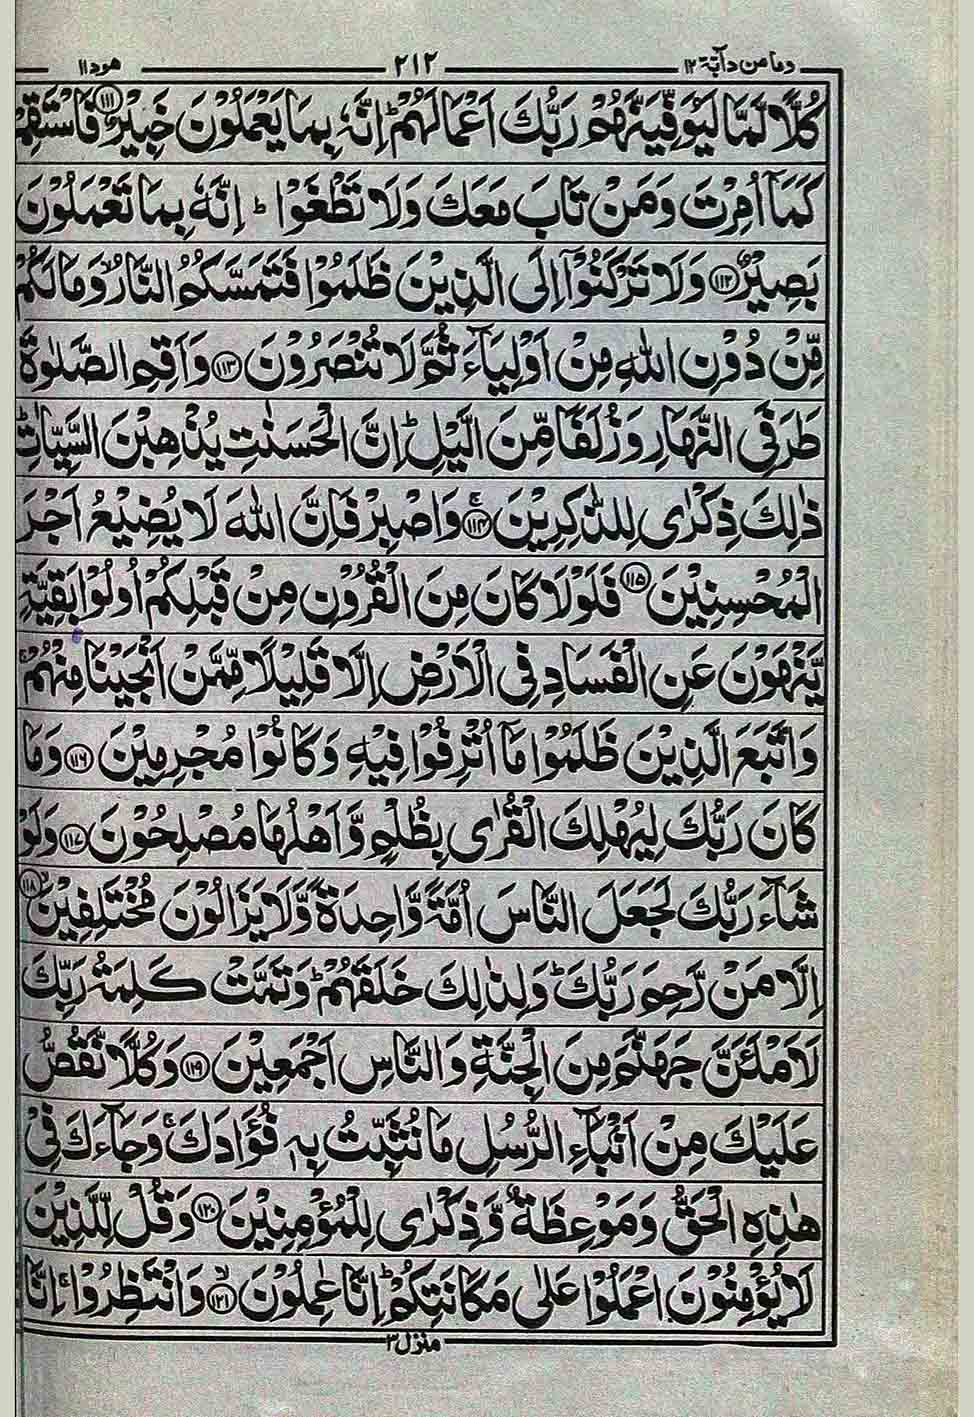 وما من دآبة ١٢
٢١٢
هود ١١
كُلًّا لَّمَّا لَيُوَفِّيَنَّهُمْ رَبُّكَ اَعْمَالَهُمْ ؕ اِنَّهٗ بِمَا يَعْمَلُوْنَ خَبِيْرٌ ﴿۱۱۱﴾ فَاسْتَقِمْ
كَمَاۤ اُمِرْتَ وَمَنْ تَابَ مَعَكَ وَلَا تَطْغَوْا ؕ اِنَّهٗ بِمَا تَعْمَلُوْنَ
بَصِيْرٌ ﴿۱۱۲﴾ وَلَا تَرْكَنُوْۤا اِلَى الَّذِيْنَ ظَلَمُوْا فَتَمَسَّكُمُ النَّارُ ۙ وَمَا لَكُمْ
مِّنْ دُوْنِ اللّٰهِ مِنْ اَوْلِيَآءَ ثُمَّ لَا تُنْصَرُوْنَ ﴿۱۱۳﴾ وَاَقِمِ الصَّلٰوةَ
طَرَفَىِ النَّهَارِ وَزُلَفًا مِّنَ الَّيْلِ ؕ اِنَّ الْحَسَنٰتِ يُذْهِبْنَ السَّيِّاٰتِ ؕ
ذٰلِكَ ذِكْرٰى لِلذّٰكِرِيْنَ ۚ ﴿۱۱۴﴾ وَاصْبِرْ فَاِنَّ اللّٰهَ لَا يُضِيْعُ اَجْرَ
الْمُحْسِنِيْنَ ﴿۱۱۵﴾ فَلَوْلَا كَانَ مِنَ الْقُرُوْنِ مِنْ قَبْلِكُمْ اُولُوْا بَقِيَّةٍ
يَّنْهَوْنَ عَنِ الْفَسَادِ فِى الْاَرْضِ اِلَّا قَلِيْلًا مِّمَّنْ اَنْجَيْنَا مِنْهُمْ ۚ
وَاتَّبَعَ الَّذِيْنَ ظَلَمُوْا مَاۤ اُتْرِفُوْا فِيْهِ وَكَانُوْا مُجْرِمِيْنَ ﴿۱۱۶﴾ وَمَا
كَانَ رَبُّكَ لِيُهْلِكَ الْقُرٰى بِظُلْمٍ وَّاَهْلُهَا مُصْلِحُوْنَ ﴿۱۱۷﴾ وَلَوْ
شَآءَ رَبُّكَ لَجَعَلَ النَّاسَ اُمَّةً وَّاحِدَةً وَّلَا يَزَالُوْنَ مُخْتَلِفِيْنَ ۙ ﴿۱۱۸﴾
اِلَّا مَنْ رَّحِمَ رَبُّكَ ؕ وَلِذٰلِكَ خَلَقَهُمْ ؕ وَتَمَّتْ كَلِمَةُ رَبِّكَ
لَاَمْلَئَنَّ جَهَنَّمَ مِنَ الْجِنَّةِ وَالنَّاسِ اَجْمَعِيْنَ ﴿۱۱۹﴾ وَكُلًّا نَّقُصُّ
عَلَيْكَ مِنْ اَنْۢبَآءِ الرُّسُلِ مَا نُثَبِّتُ بِهٖ فُؤَادَكَ ۚ وَجَآءَكَ فِىْ
هٰذِهِ الْحَقُّ وَمَوْعِظَةٌ وَّذِكْرٰى لِلْمُؤْمِنِيْنَ ﴿۱۲۰﴾ وَقُلْ لِّلَّذِيْنَ
لَا يُؤْمِنُوْنَ اعْمَلُوْا عَلٰى مَكَانَتِكُمْ ؕ اِنَّا عٰمِلُوْنَ ۙ ﴿۱۲۱﴾ وَانْتَظِرُوْا ۚ اِنَّا
منزل ٣